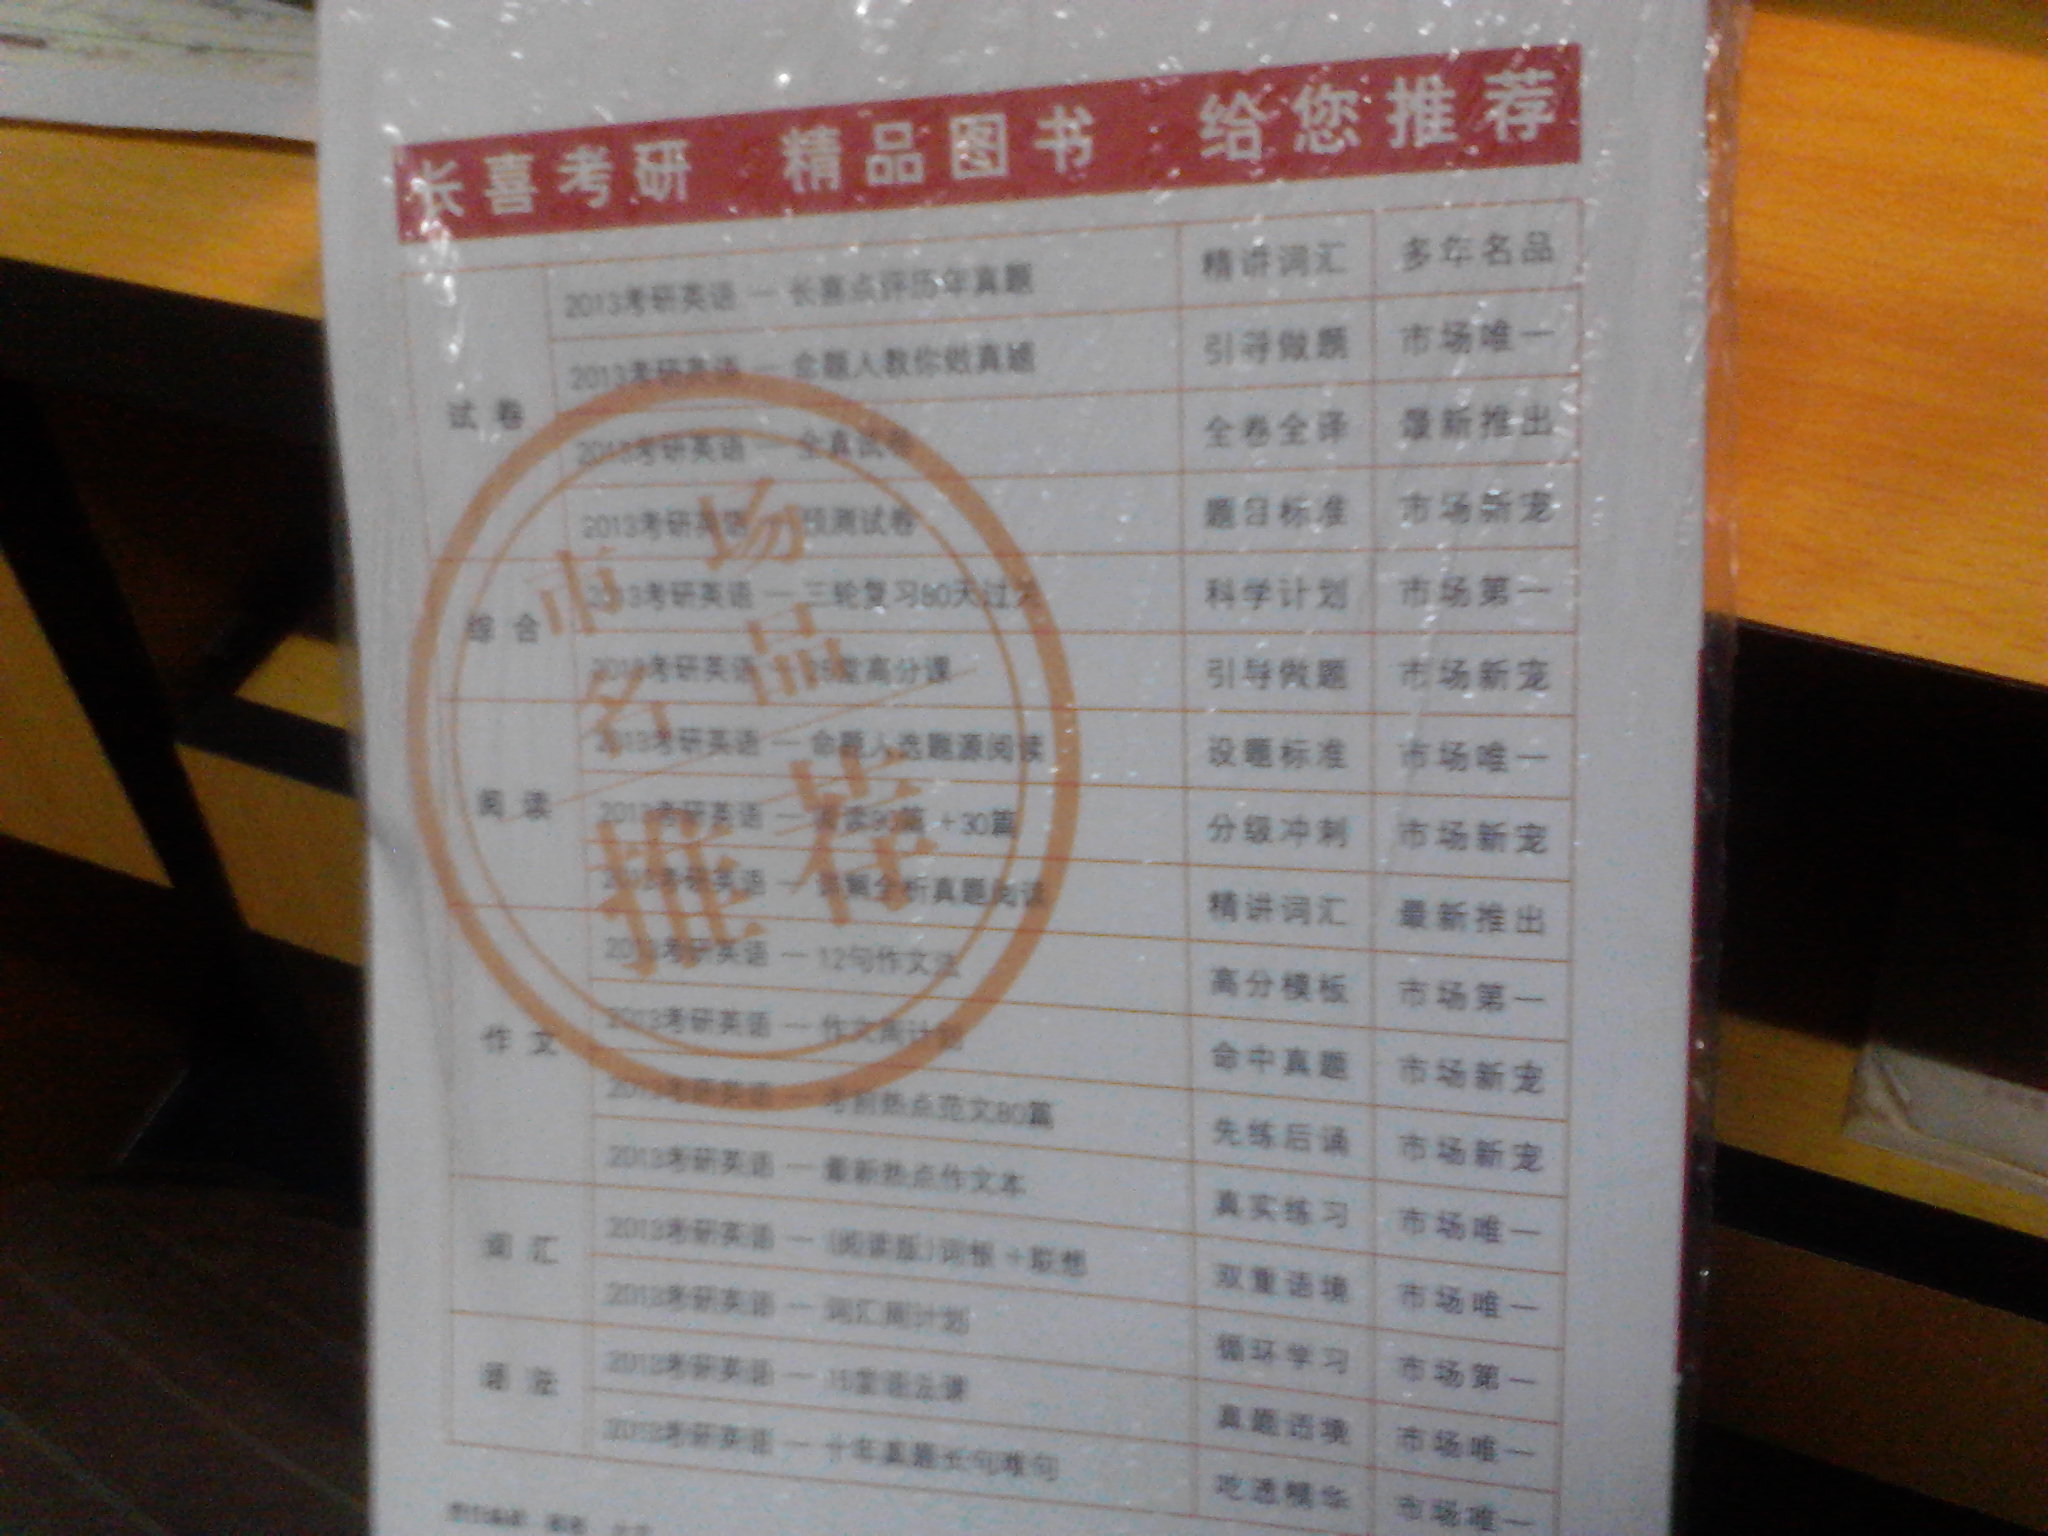 长喜考研 精品图书 给您推荐
试卷
2013考研英语 — 长喜点评历年真题 精讲词汇 多年名品
2013考研英语 — 命题人教你做真题 引导做题 市场唯一
2013考研英语 — 全真试卷 全卷全译 最新推出
2013考研英语 — 预测试卷 题目标准 市场新宠
综合
2013考研英语 — 三轮复习80天过关 科学计划 市场第一
2013考研英语 — 25堂高分课 引导做题 市场新宠
阅读
2013考研英语 — 命题人选题源阅读 设题标准 市场唯一
2013考研英语 — 阅读90篇+30篇 分级冲刺 市场新宠
2013考研英语 — 分析真题阅读 精讲词汇 最新推出
作文
2013考研英语 — 12句作文法 高分模板 市场第一
2013考研英语 — 作文周计划 命中真题 市场新宠
2013考研英语 — 考前热点范文80篇 先练后诵 市场新宠
2013考研英语 — 最新热点作文本 真实练习 市场唯一
词汇
2013考研英语 — (阅读版)词根+联想 双重语境 市场唯一
2013考研英语 — 词汇周计划 循环学习 市场第一
语法
2013考研英语 — 15堂语法课 真题语境 市场唯一
2013考研英语 — 十年真题长句难句 吃透精华 市场唯一
市场
名品
推荐